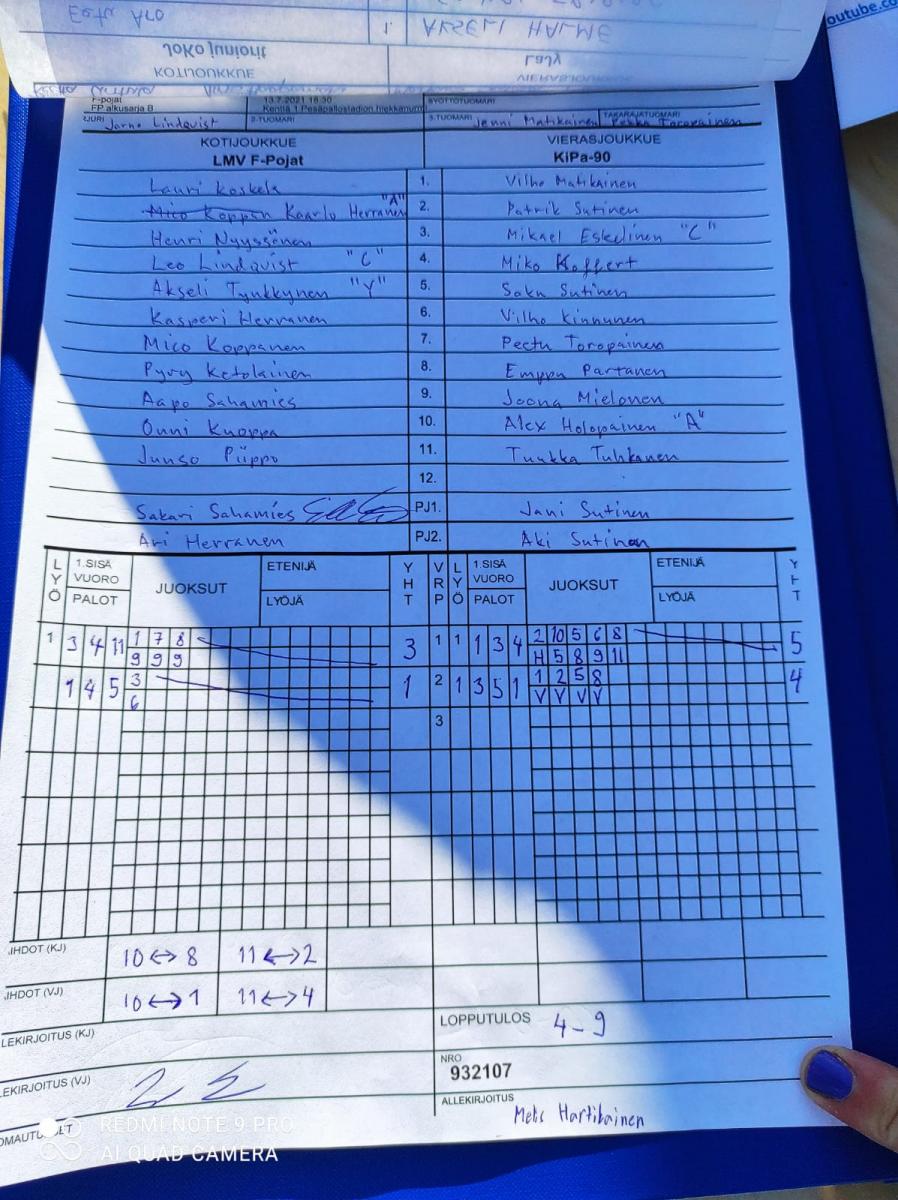 Eetu Aro 1. AKSELI HALME
JoKo juniorit LaJy
KOTIJOUKKUE VIERASJOUKKUE
F-pojat 13.7.2021 16:30 SYÖTTÖTUOMARI
FP alkusarja B Kenttä 1 Pesäpallostadion hiekkanurmi
Jarno Lindqvist 2-TUOMARI 3-TUOMARI Jenni Matikainen TAKARAJATUOMARI Pekka Toropainen
KOTIJOUKKUE VIERASJOUKKUE
LMV F-Pojat KiPa-90
Lauri Koskela 1. Vilho Matikainen
Mico Koppan Kaarlo Herranen "A" 2. Patrik Sutinen
Henri Nyyssönen 3. Mikael Eskelinen "C"
Leo Lindqvist "C" 4. Miko Koffert
Akseli Tynkkynen "Y" 5. Saku Sutinen
Kasperi Herranen 6. Vilho Kinnunen
Mico Koppanen 7. Peetu Toropainen
Pyry Ketolainen 8. Emppu Partanen
Aapo Sahamies 9. Joona Mielonen
Onni Kuoppa 10. Alex Holopainen "A"
Juuso Piippo 11. Tuukka Tuhkanen
12.
Sakari Sahamies PJ1. Jani Sutinen
Ari Herranen PJ2. Aki Sutinen
LYÖ 1.SISÄ VUORO PALOT JUOKSUT ETENIJÄ LYÖJÄ YHT VRP LYÖ 1.SISÄ VUORO PALOT JUOKSUT ETENIJÄ LYÖJÄ YHT
1 3 4 11 1 7 8 3 1 1 1 3 4 2 10 5 6 8 5
9 9 9 H 5 8 9 11
1 4 5 3 1 2 1 3 5 1 1 2 5 8 4
6 V V V V
3
IHDOT (KJ) 10↔8 11↔2
IHDOT (VJ) 10↔1 11↔4
LEKIRJOITUS (KJ) LOPPUTULOS 4-9
LEKIRJOITUS (VJ) NRO
932107
ALLEKIRJOITUS
Hartikainen
REDMI NOTE 9 PRO
AI QUAD CAMERA